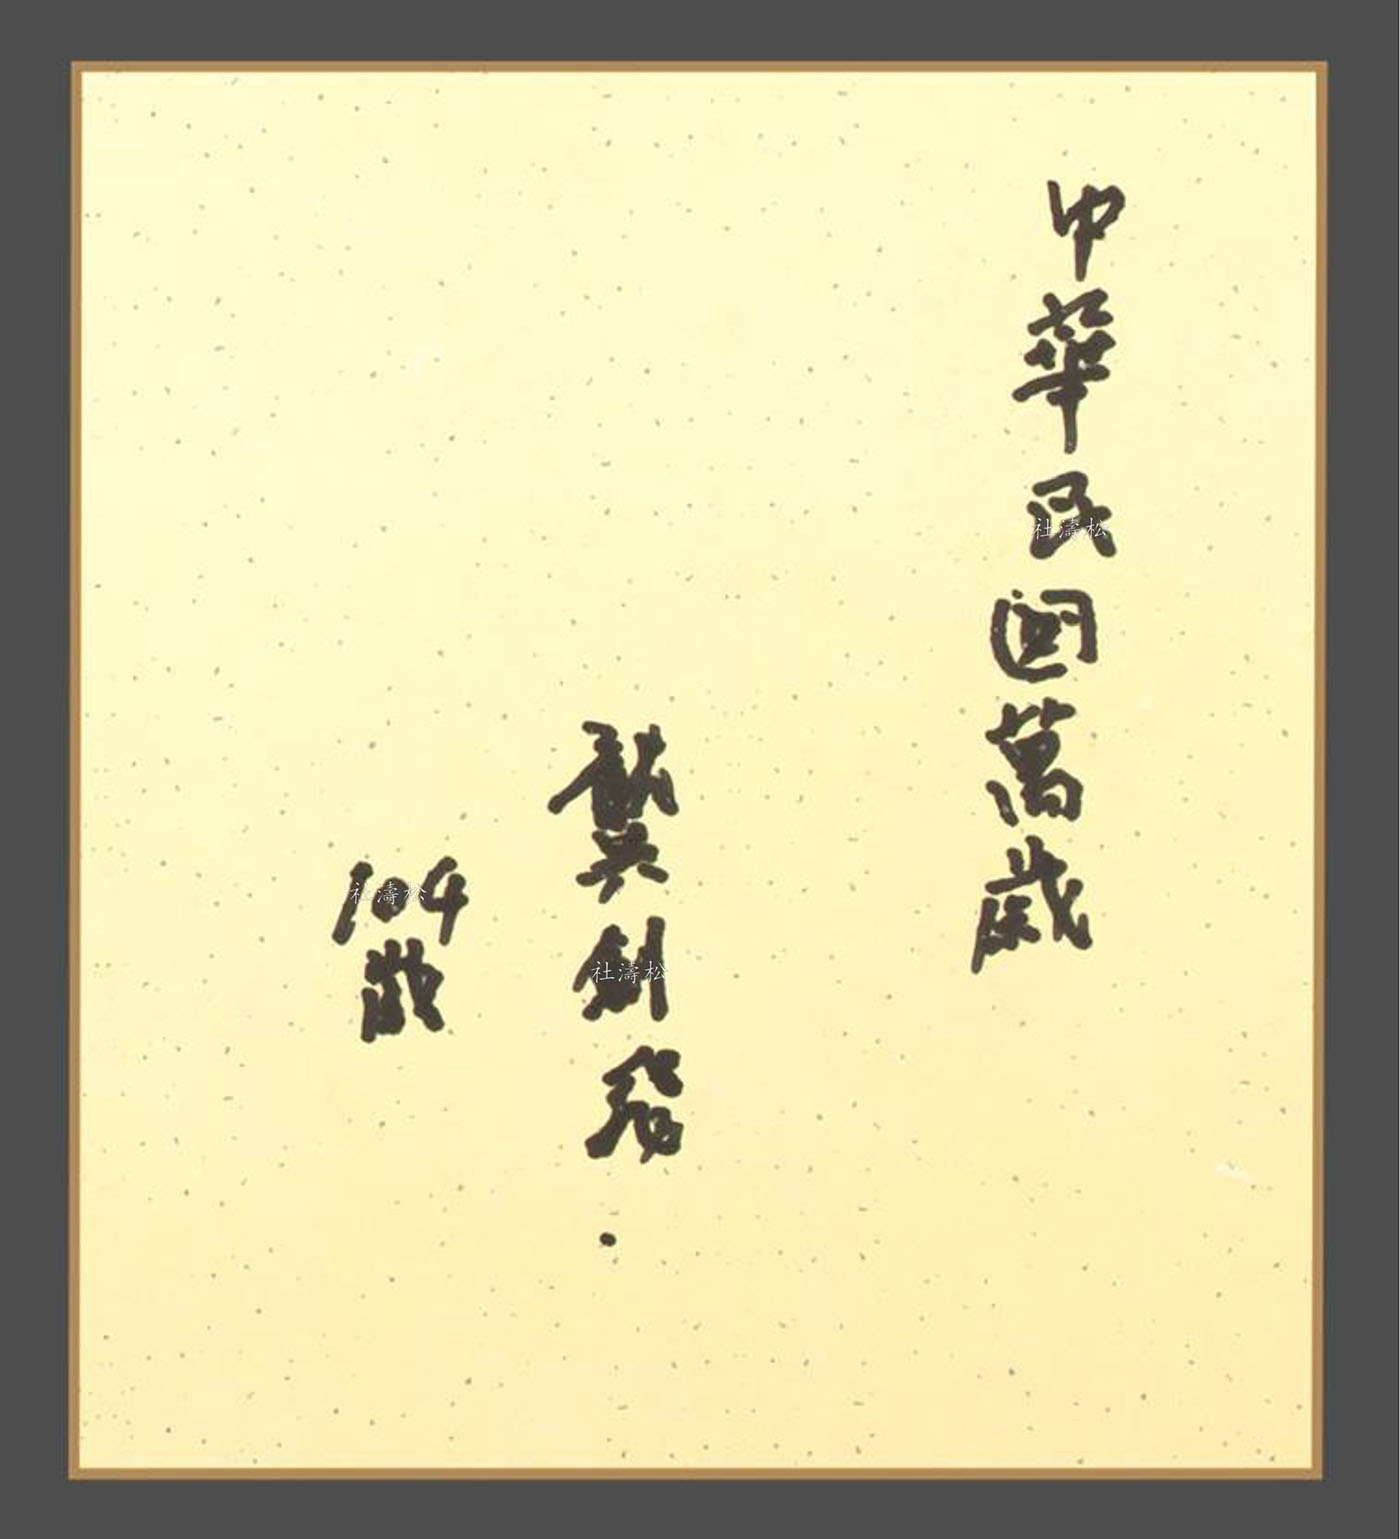 中華民國萬歲
龔
104歲
松濤社
松濤社
松濤社